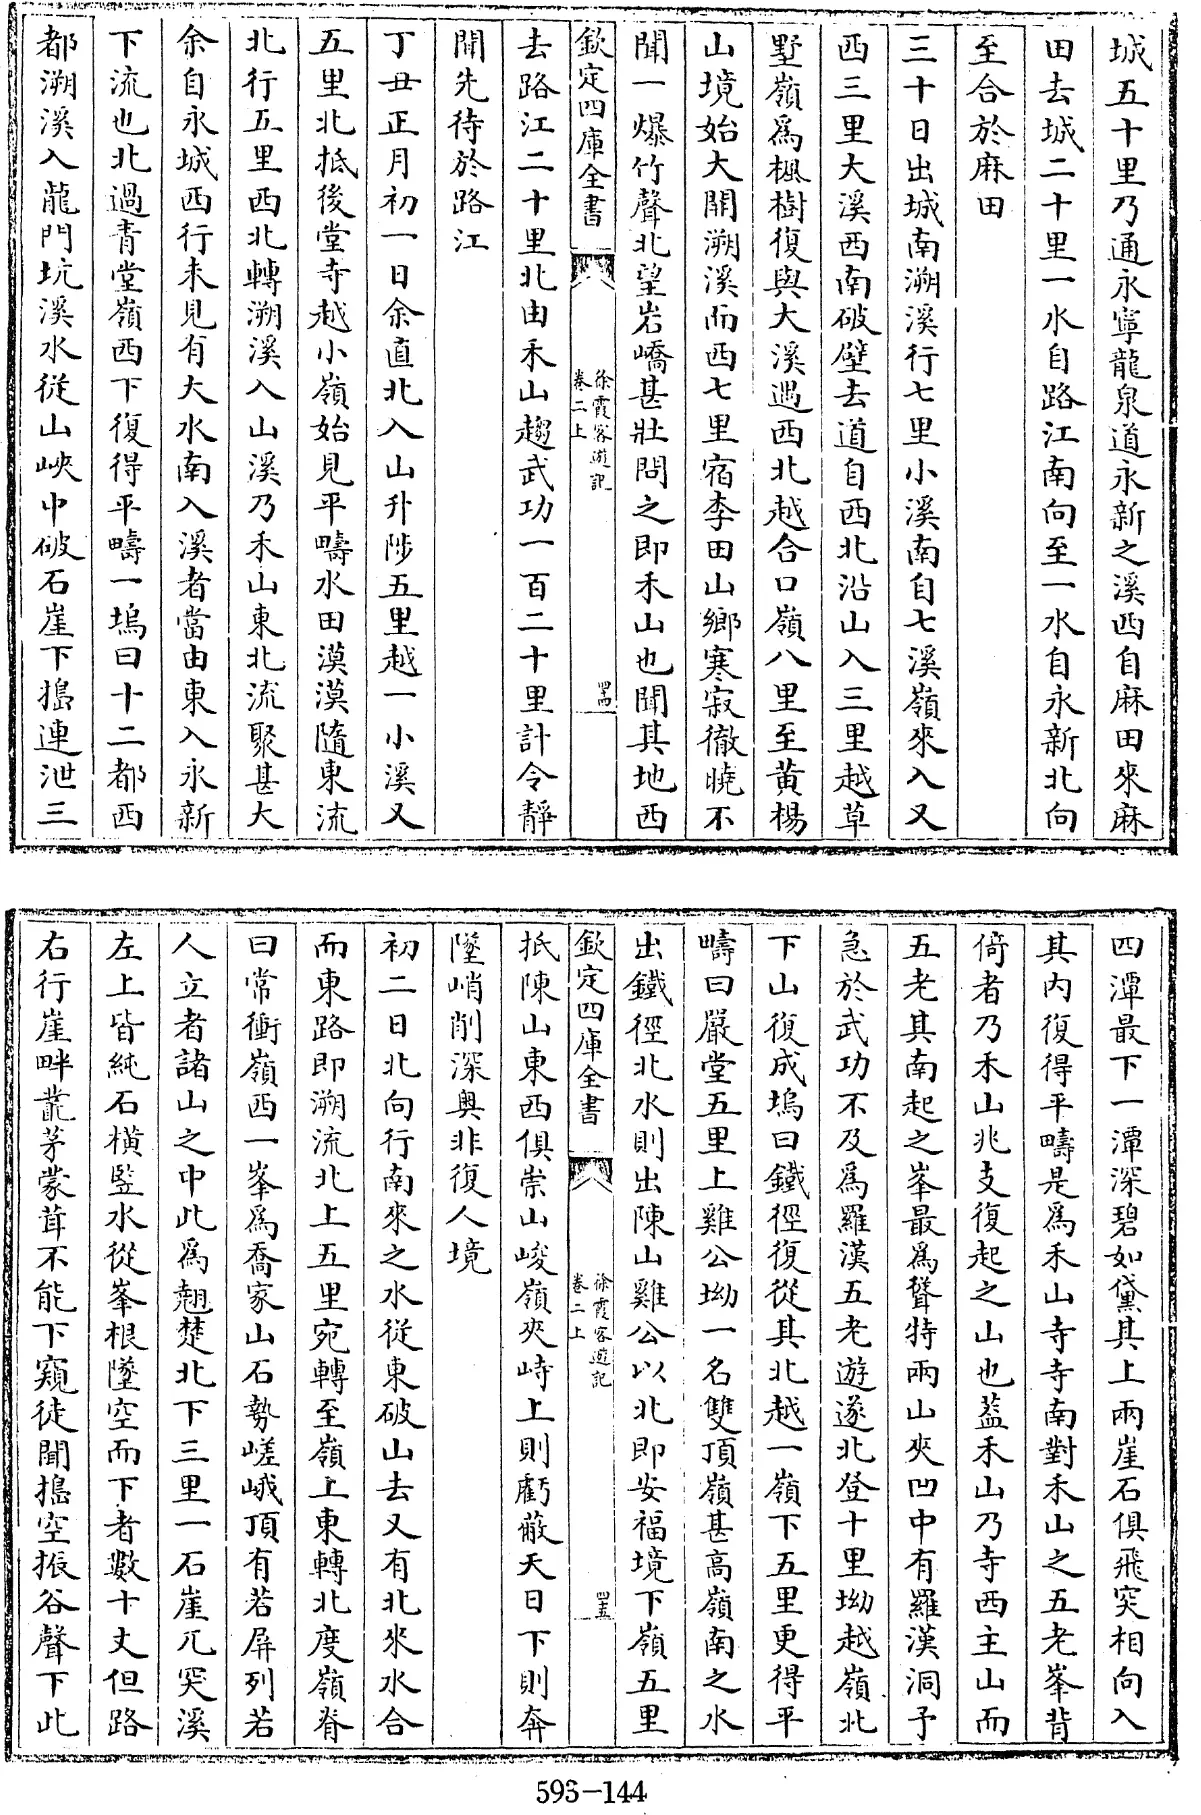 城五十里乃通永寧龍泉道永新之溪西自麻田來麻
田去城二十里一水自路江南向至一水自永新北向
至合於麻田
三十日出城南溯溪行七里小溪南自七溪嶺來入又
西三里大溪西南破壁去道自西北沿山入三里越草
墅嶺爲楓樹復與大溪遇西北越合口嶺八里至黃楊
山境始大開溯溪而西七里宿李田山鄉寒寂徹曉不
聞一爆竹聲北望岩嶠甚壯問之即禾山也聞其地西
欽定四庫全書
徐霞客遊記
卷二上
四四
去路江二十里北由禾山趨武功一百二十里計令靜
聞先待於路江
丁丑正月初一日余直北入山升陟五里越一小溪又
五里北抵後堂寺越小嶺始見平疇水田漠漠隨東流
北行五里西北轉溯溪入山溪乃禾山東北流聚甚大
余自永城西行未見有大水南入溪者當由東入永新
下流也北過青堂嶺西下復得平疇一塢曰十二都西
都溯溪入龍門坑溪水從山峽中破石崖下搗連泄三
四潭最下一潭深碧如黛其上兩崖石俱飛突相向入
其內復得平疇是爲禾山寺寺南對禾山之五老峯背
倚者乃禾山兆支復起之山也葢禾山乃寺西主山而
五老其南起之峯最爲聳特兩山夾凹中有羅漢洞予
急於武功不及爲羅漢五老遊遂北登十里坳越嶺北
下山復成塢曰鐵徑復從其北越一嶺下五里更得平
疇曰嚴堂五里上雞公坳一名雙頂嶺甚高嶺南之水
出鐵徑北水則出陳山雞公以北即安福境下嶺五里
欽定四庫全書
徐霞客遊記
卷二上
四五
抵陳山東西俱崇山峻嶺夾峙上則虧蔽天日下則奔
墜峭削深奧非復人境
初二日北向行南來之水從東破山去又有北來水合
而東路即溯流北上五里宛轉至嶺上東轉北度嶺脊
曰常衝嶺西一峯爲喬家山石勢嵯峨頂有若屏列若
人立者諸山之中此爲翹楚北下三里一石崖兀突溪
左上皆純石橫竪水從峯根墜空而下者數十丈但路
右行崖畔叢茅蒙茸不能下窺徒聞搗空振谷聲下此
593-144